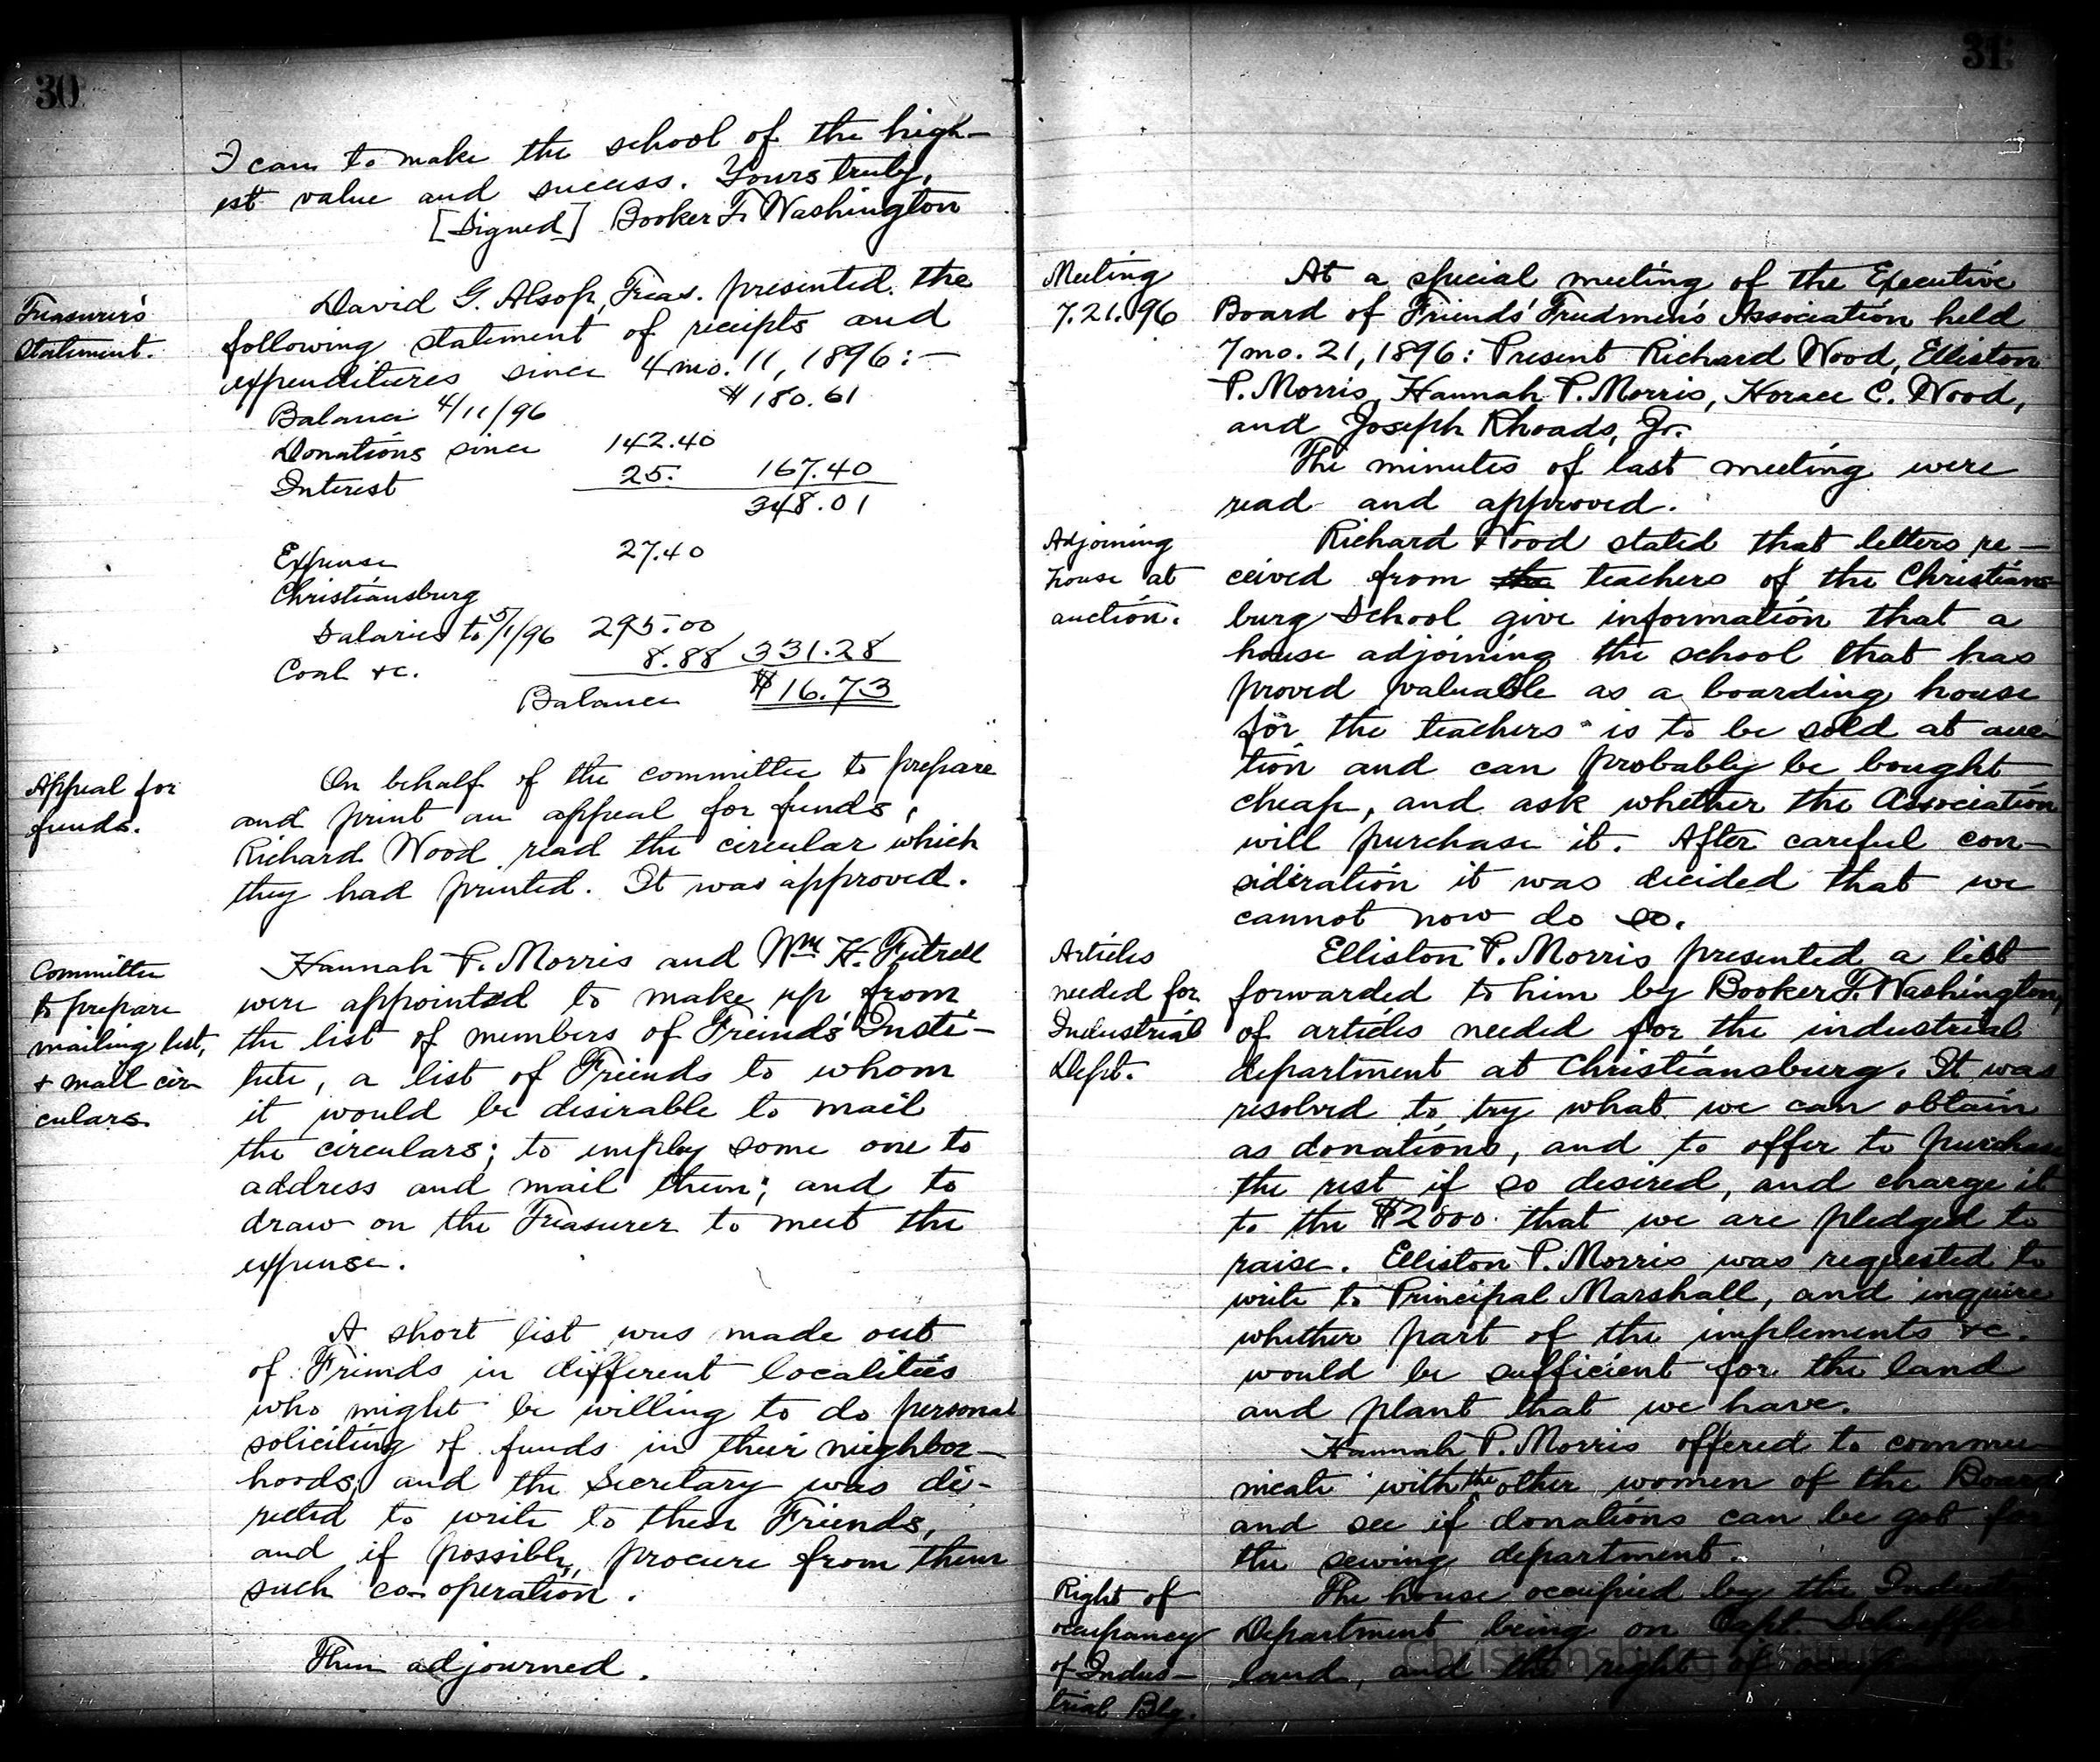 30
I can to make the school of the high-
est value and success. Yours truly,
[Signed] Booker T. Washington
Treasurer's
Statement.
David G. Alsop, Treas. presented the
following statement of receipts and
expenditures since 4 mo. 11, 1896:-
Balance 4/11/96 $180.61
Donations since 142.40
Interest 25. 167.40
348.01
Expense 27.40
Christiansburg
Salaries to 5/1/96 295.00
Coal &c. 8.88 331.28
Balance $16.73
Appeal for
funds.
On behalf of the committee to prepare
and print an appeal for funds,
Richard Wood read the circular which
they had printed. It was approved.
Committee
to prepare
mailing list,
& mail cir-
culars.
Hannah P. Morris and Wm H. Futrell
were appointed to make up from
the list of members of Freinds' Insti-
tute, a list of Friends to whom
it would be desirable to mail
the circulars; to employ some one to
address and mail them; and to
draw on the Treasurer to meet the
expense.
A short list was made out
of Friends in different localities
who might be willing to do personal
soliciting of funds in their nieghbor-
hoods, and the Secretary was di-
rected to write to these Friends,
and if possible, procure from them
such co-operation.
Then adjourned.
31
Meeting
7.21.96
At a special meeting of the Executive
Board of Friends' Freedmen's Association held
7 mo. 21, 1896: Present Richard Wood, Elliston
P. Morris, Hannah P. Morris, Horace C. Wood,
and Joseph Rhoads, Jr.
The minutes of last meeting were
read and approved.
Adjoining
house at
auction.
Richard Wood stated that letters re-
ceived from the teachers of the Christians-
burg School give information that a
house adjoining the school that has
proved valuable as a boarding house
for the teachers is to be sold at auc-
tion and can probably be bought
cheap, and ask whether the Association
will purchase it. After careful con-
sideration it was decided that we
cannot now do so.
Articles
needed for
Industrial
Dept.
Elliston P. Morris presented a list
forwarded to him by Booker T. Washington,
of articles needed for the industrial
department at Christiansburg. It was
resolved to try what we can obtain
as donations, and to offer to purchase
the rest if so desired, and charge it
to the $2000 that we are pledged to
raise. Elliston P. Morris was requested to
write to Principal Marshall, and inquire
whether part of the implements &c.
would be sufficient for the land
and plant that we have.
Hannah P. Morris offered to commu-
nicate with the other women of the Board
and see if donations can be got for
the sewing department.
Right of
occupancy
of Indus-
trial Blg.
The house occupied by the
Department being on Capt.
land, and the right of